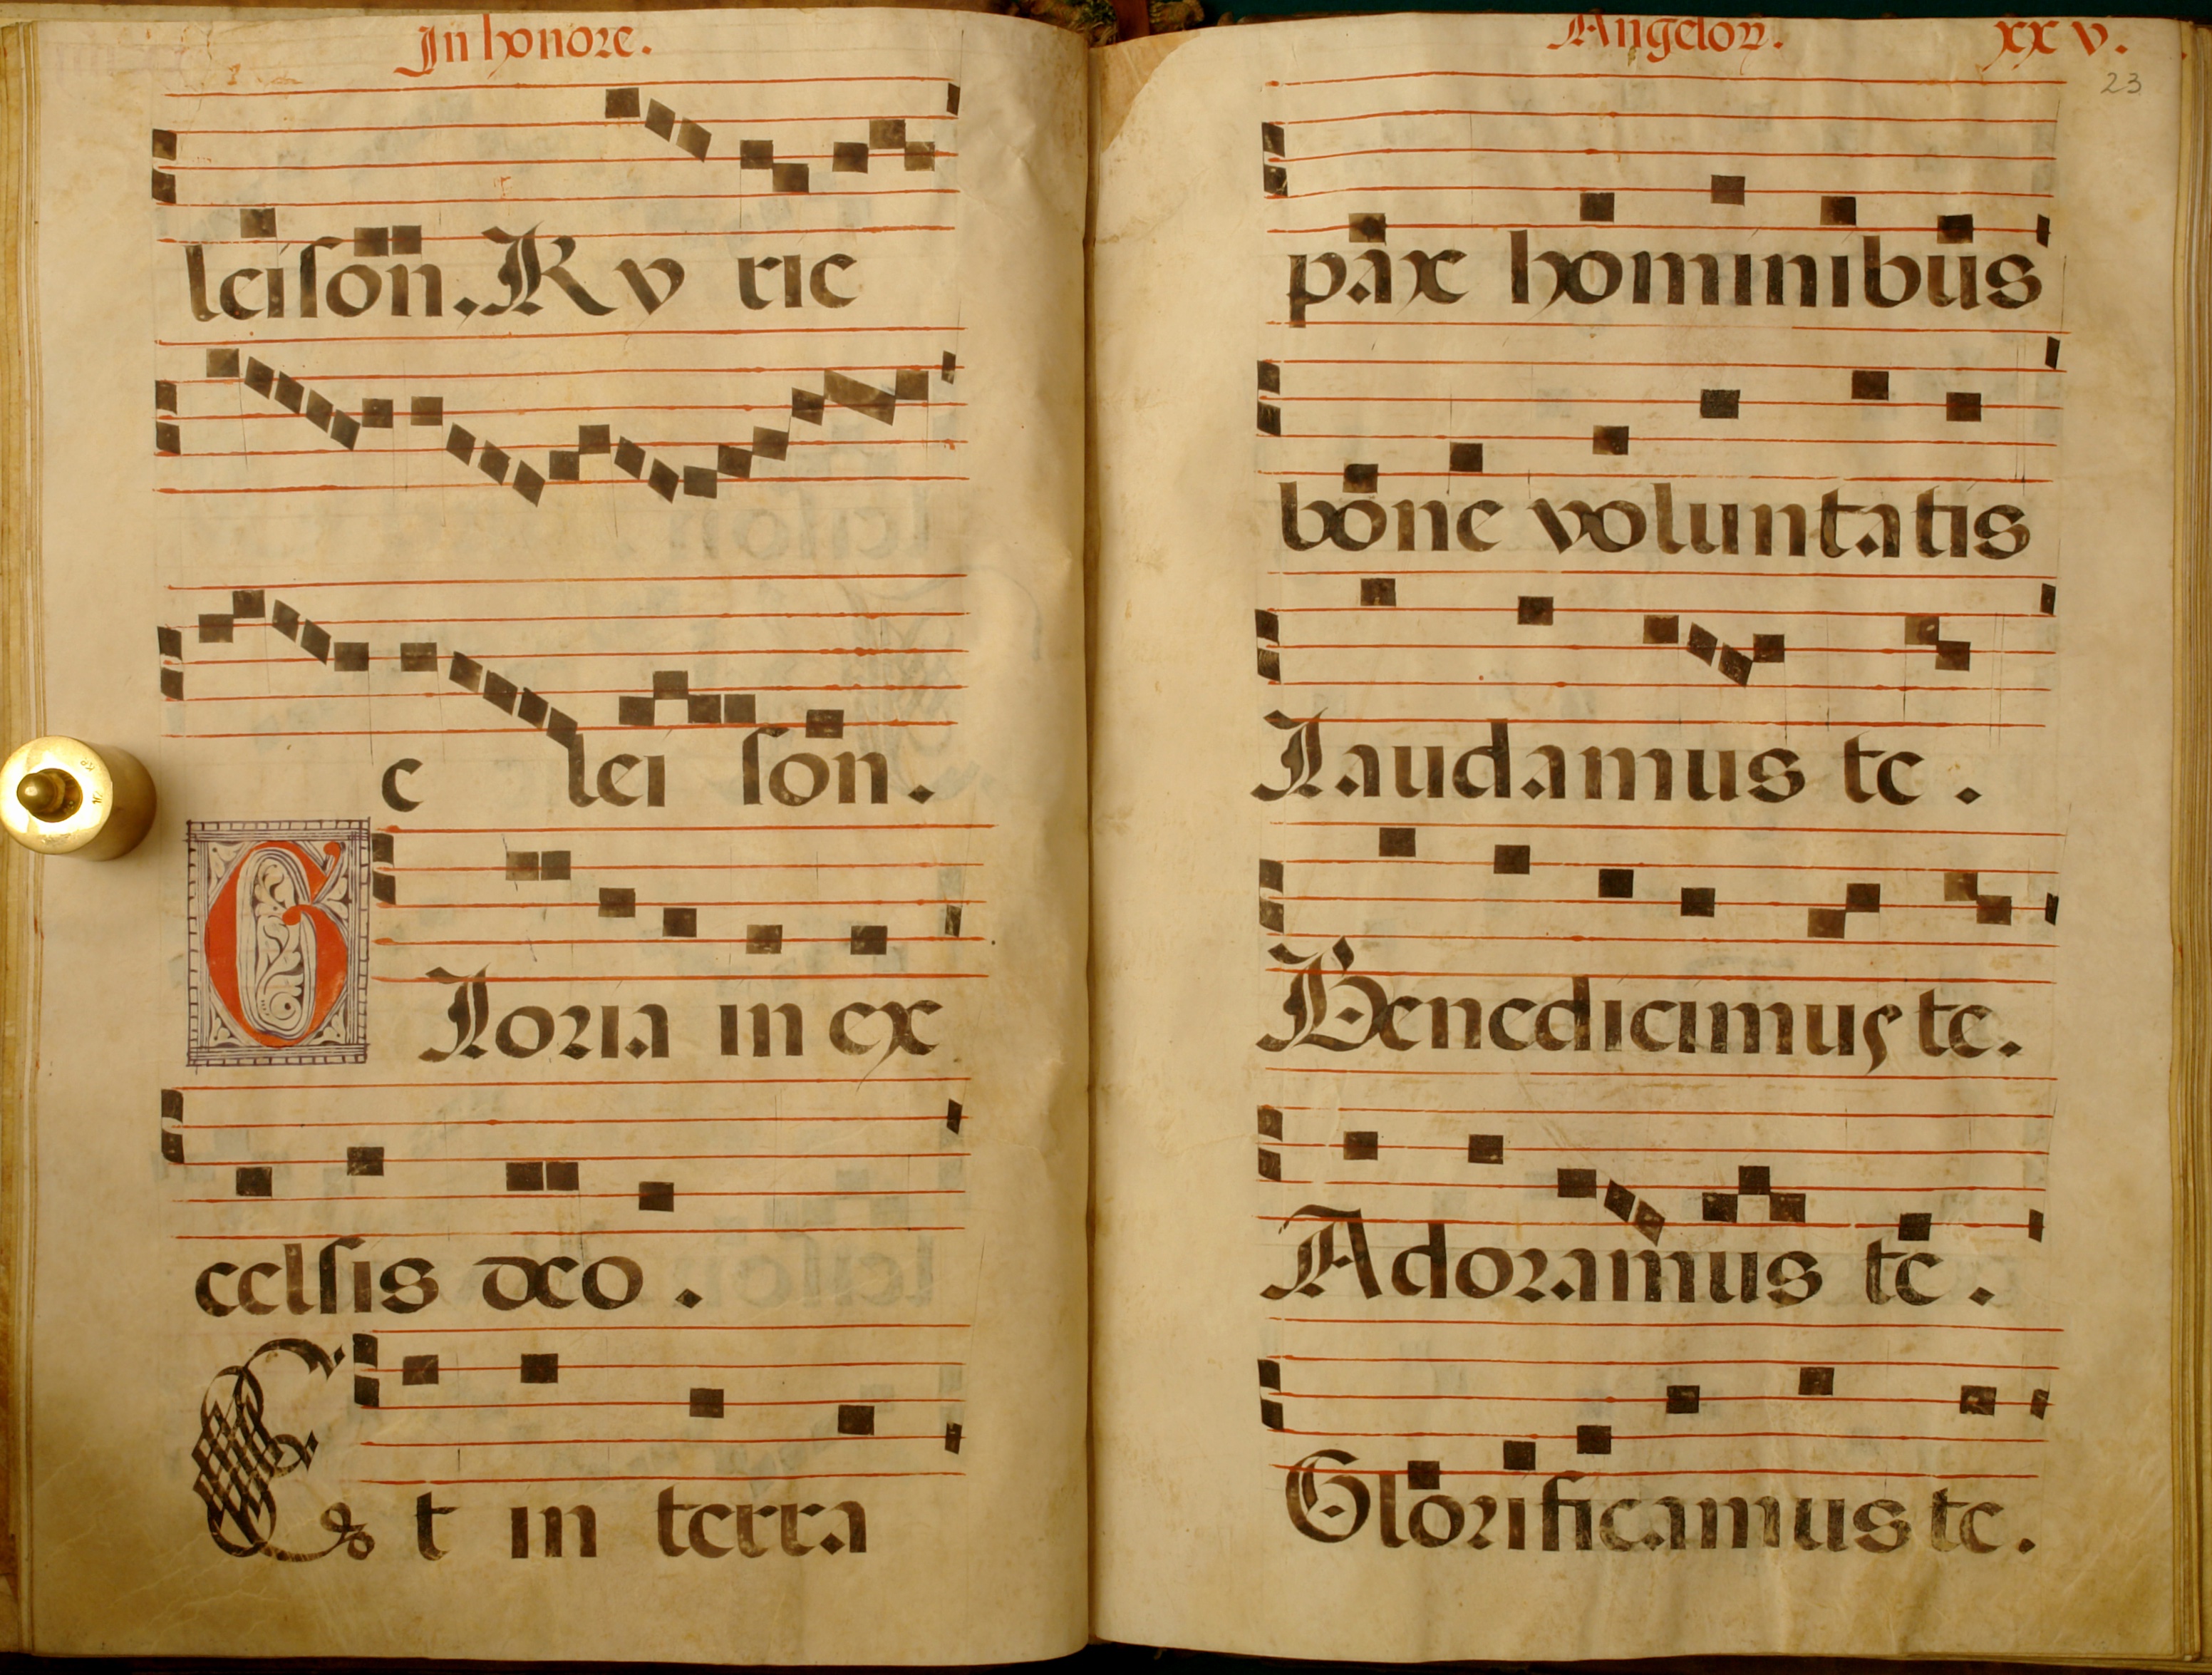 In honore.
leison. Ky rie
e lei son.
Gloria in ex
celsis deo.
Et in terra
Angeloꝝ. xxv.
23
pax hominibus
bone voluntatis
Laudamus te.
Benedicimus te.
Adoramus te.
Glorificamus te.